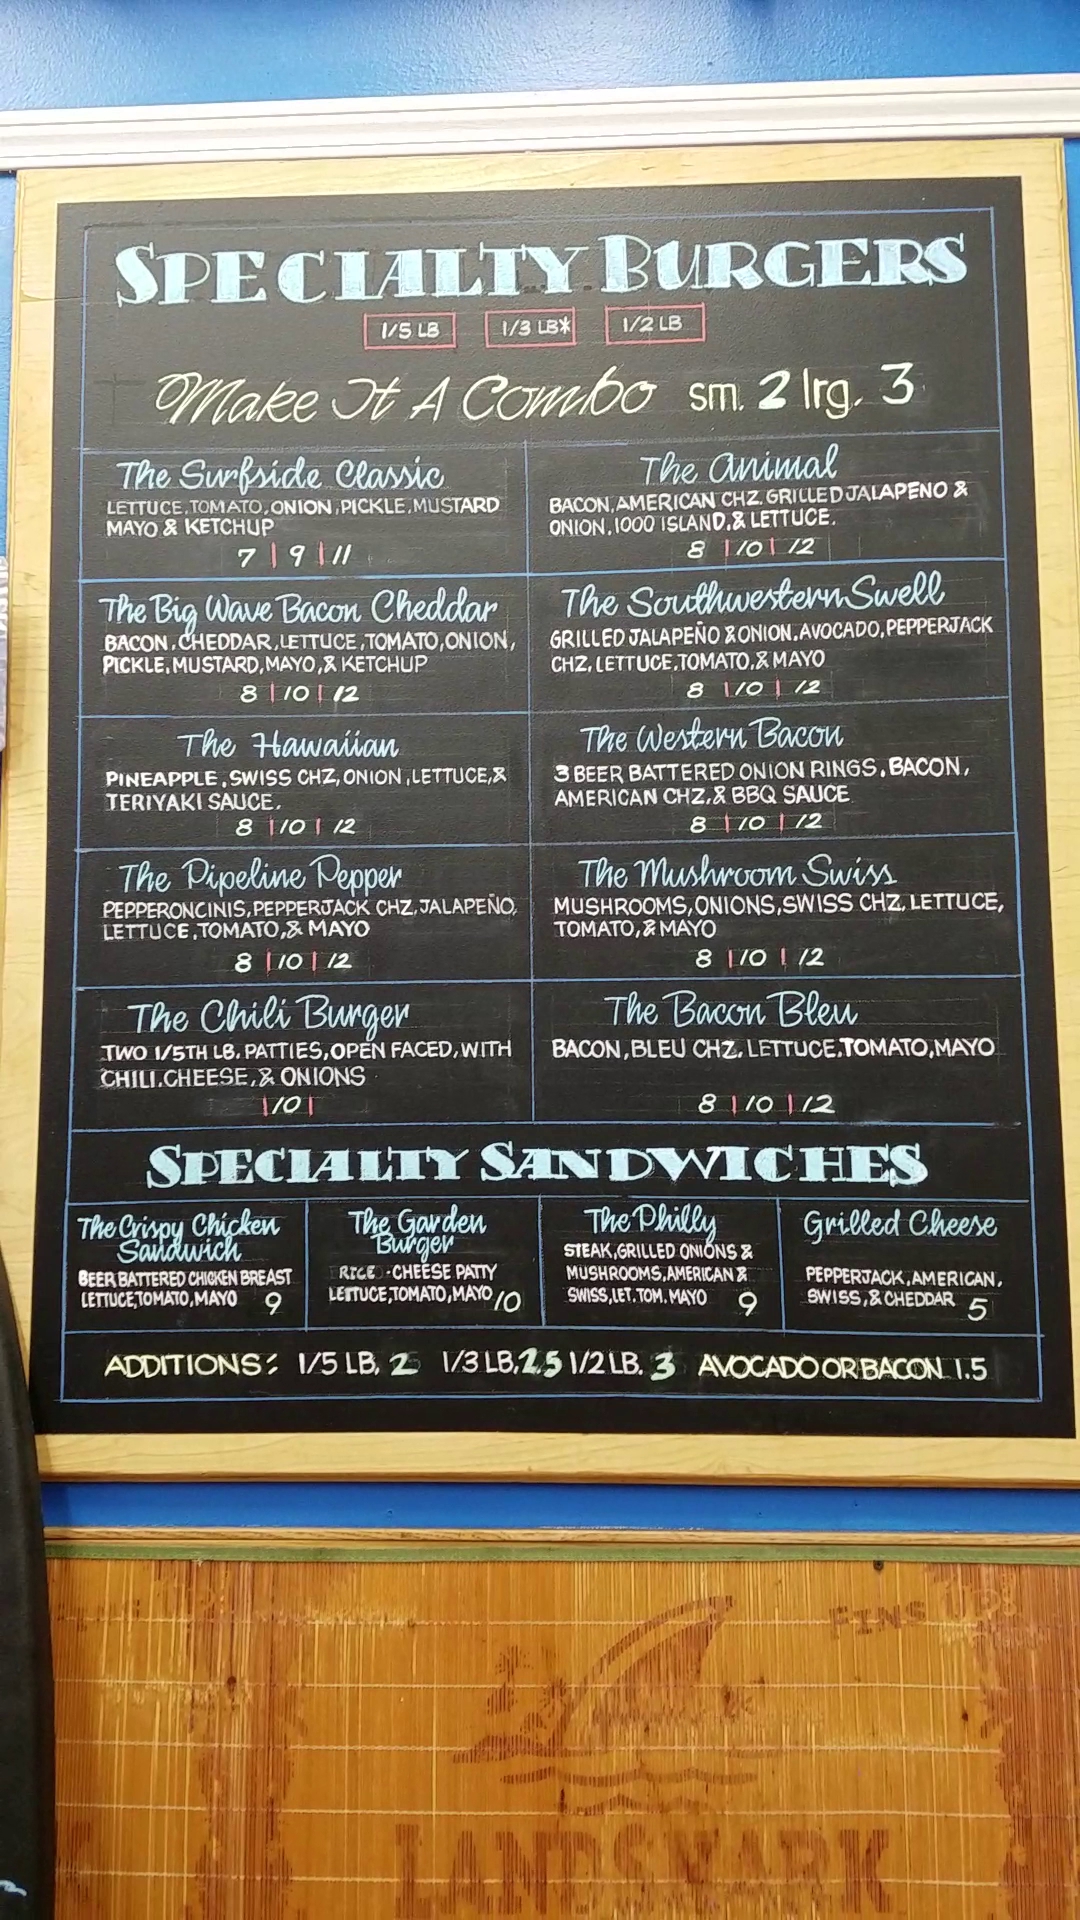 SPECIALTY BURGERS
1/5 LB 1/3 LB* 1/2 LB
Make It A Combo sm. 2 lrg. 3
The Surfside Classic
LETTUCE, TOMATO, ONION, PICKLE, MUSTARD
MAYO & KETCHUP
7 | 9 | 11
The Animal
BACON, AMERICAN CHZ, GRILLED JALAPENO &
ONION, 1000 ISLAND, & LETTUCE.
8 | 10 | 12
The Big Wave Bacon Cheddar
BACON, CHEDDAR, LETTUCE, TOMATO, ONION,
PICKLE, MUSTARD, MAYO, & KETCHUP
8 | 10 | 12
The Southwestern Swell
GRILLED JALAPEÑO & ONION, AVOCADO, PEPPERJACK
CHZ, LETTUCE, TOMATO, & MAYO
8 | 10 | 12
The Hawaiian
PINEAPPLE, SWISS CHZ, ONION, LETTUCE, &
TERIYAKI SAUCE.
8 | 10 | 12
The Western Bacon
3 BEER BATTERED ONION RINGS, BACON,
AMERICAN CHZ, & BBQ SAUCE
8 | 10 | 12
The Pipeline Pepper
PEPPERONCINIS, PEPPERJACK CHZ, JALAPEÑO,
LETTUCE, TOMATO, & MAYO
8 | 10 | 12
The Mushroom Swiss
MUSHROOMS, ONIONS, SWISS CHZ, LETTUCE,
TOMATO, & MAYO
8 | 10 | 12
The Chili Burger
TWO 1/5TH LB. PATTIES, OPEN FACED, WITH
CHILI, CHEESE, & ONIONS
| 10 |
The Bacon Bleu
BACON, BLEU CHZ, LETTUCE, TOMATO, MAYO
8 | 10 | 12
SPECIALTY SANDWICHES
The Crispy Chicken
Sandwich
BEER BATTERED CHICKEN BREAST
LETTUCE, TOMATO, MAYO 9
The Garden
Burger
RICE - CHEESE PATTY
LETTUCE, TOMATO, MAYO 10
The Philly
STEAK, GRILLED ONIONS &
MUSHROOMS, AMERICAN &
SWISS, LET. TOM. MAYO 9
Grilled Cheese
PEPPERJACK, AMERICAN,
SWISS, & CHEDDAR 5
ADDITIONS: 1/5 LB. 2 1/3 LB. 2.5 1/2 LB. 3 AVOCADO OR BACON 1.5
FINS UP!
LANDSHARK